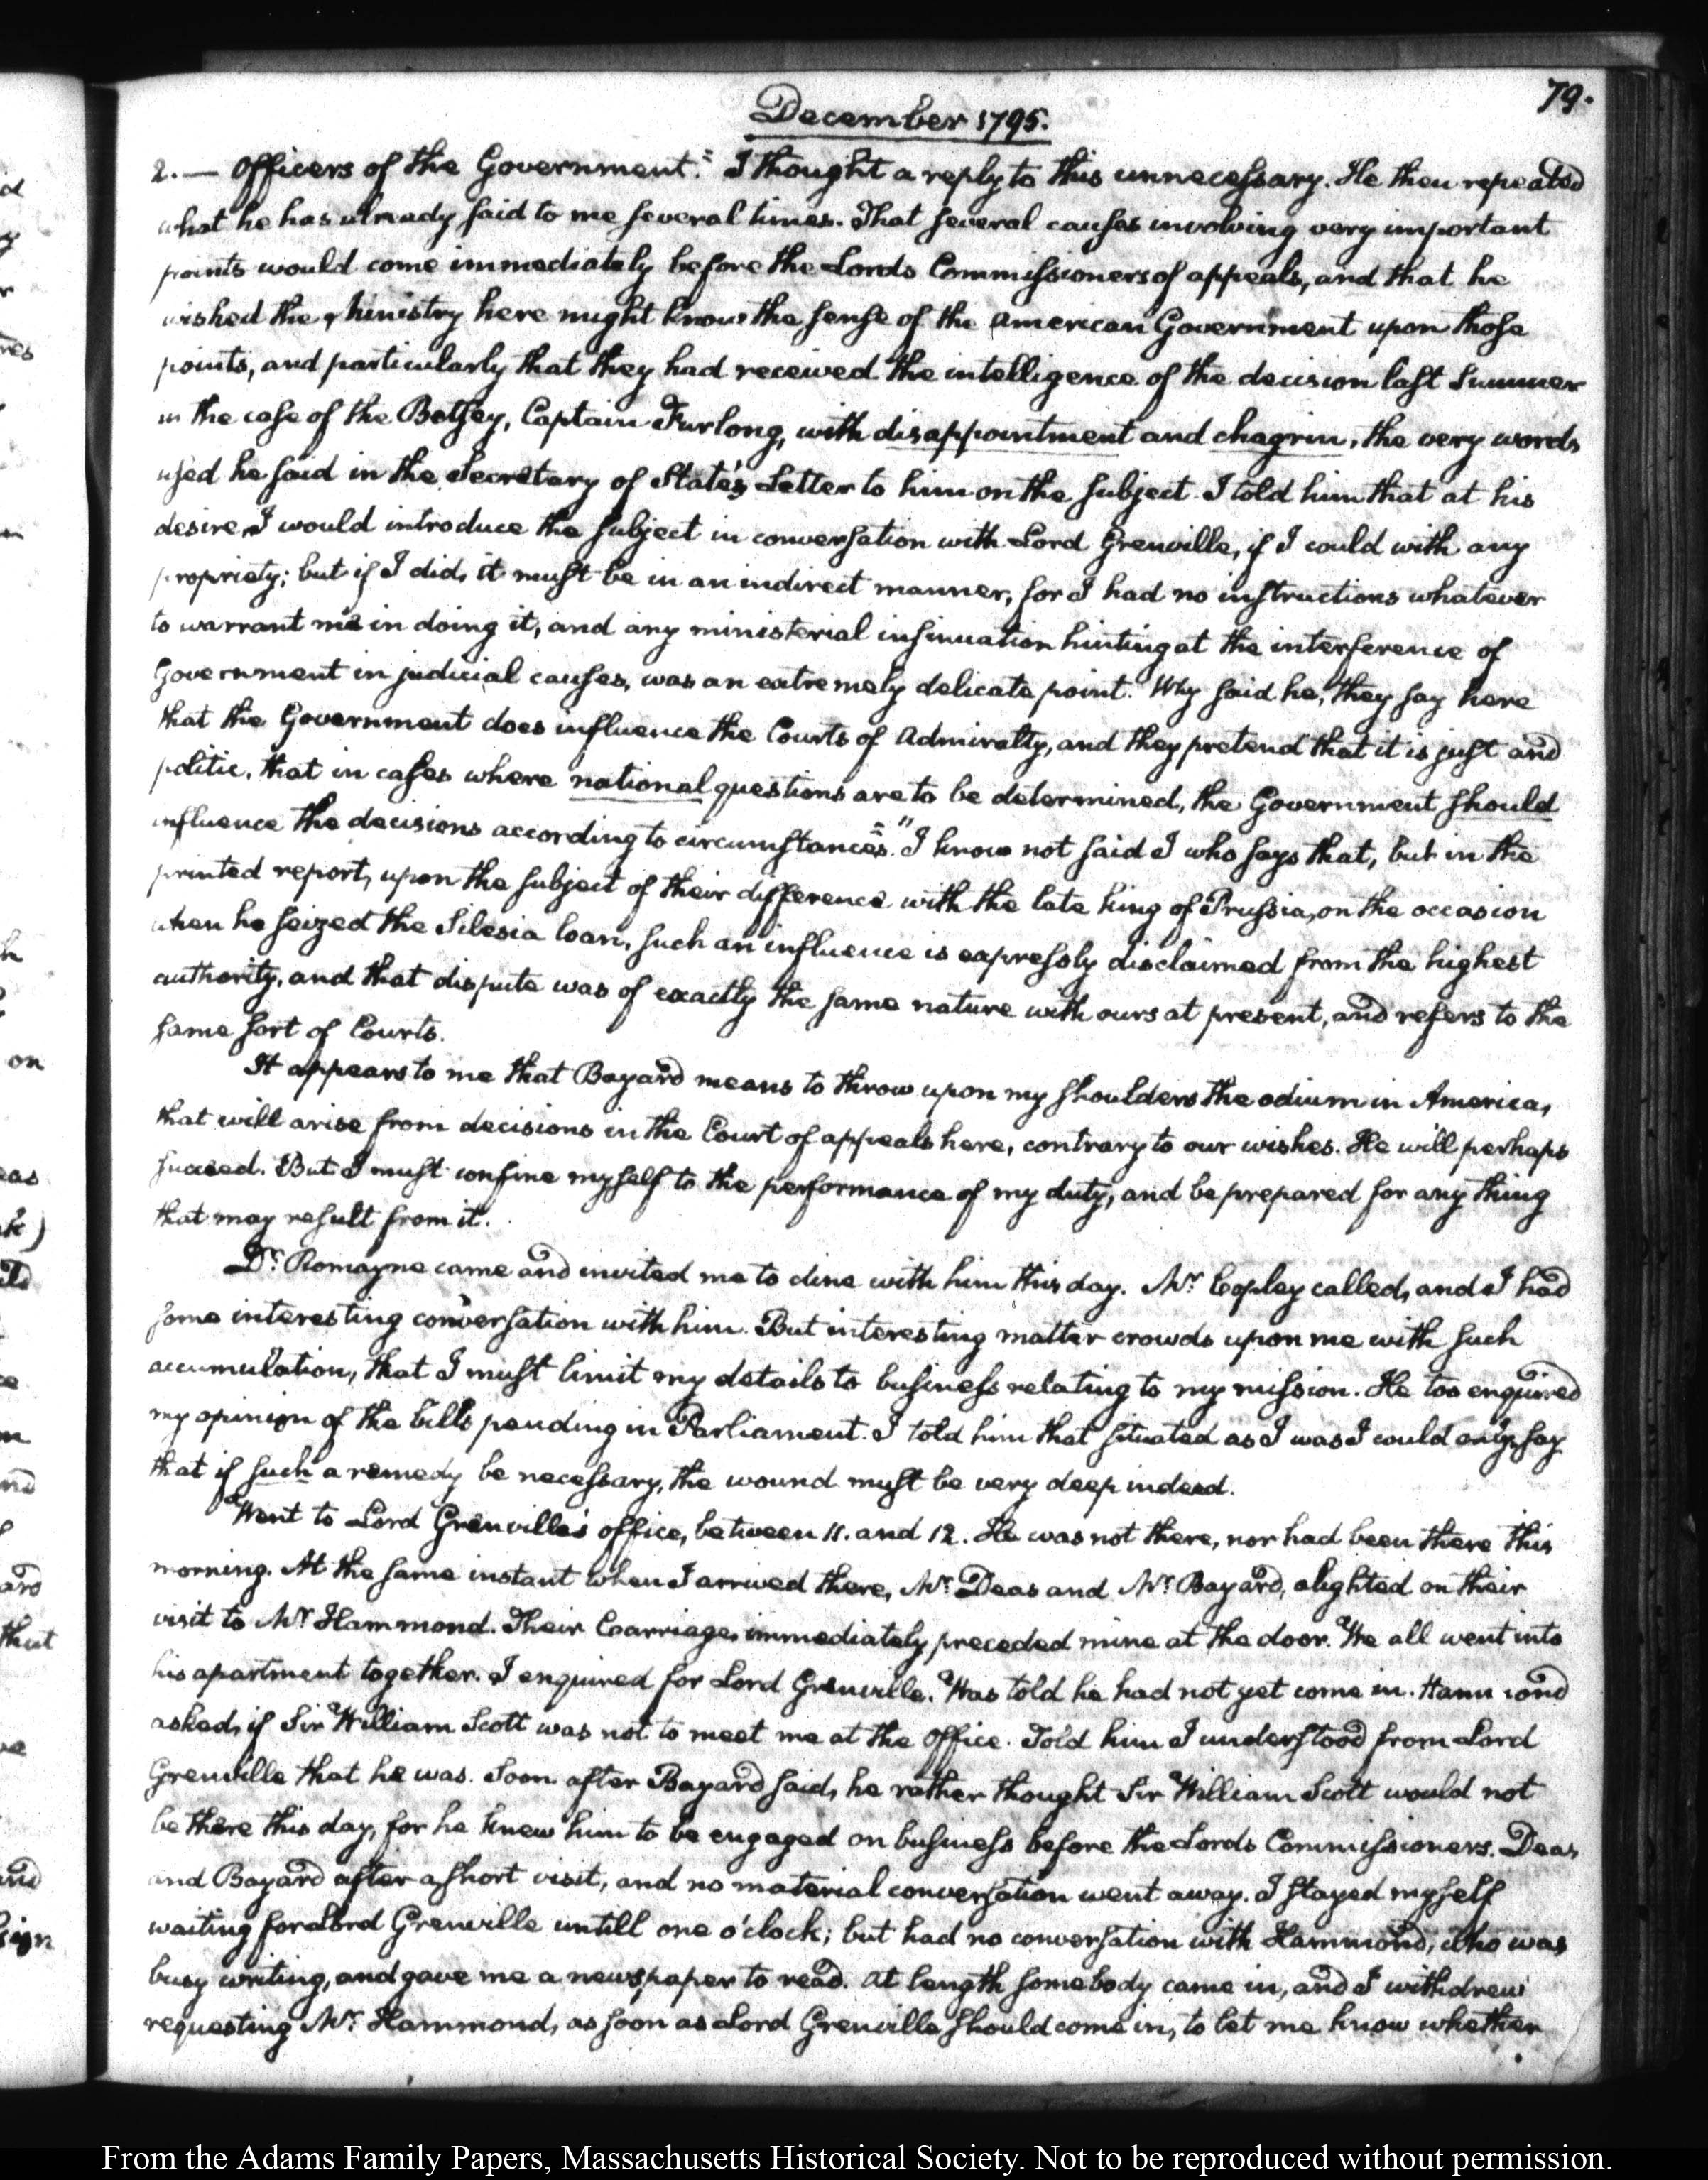 79.
December 1795.
2. — Officers of the Government." I thought a reply to this unnecessary. He then repeated
what he has already said to me several times. That several causes involving very important
points would come immediately before the Lords Commissioners of appeals, and that he
wished the Ministry here might know the sense of the American Government upon those
points, and particularly that they had received the intelligence of the decision last Summer
in the case of the Betsey, Captain Furlong, with disappointment and chagrin, the very words
used he said in the Secretary of State's Letter to him on the subject. I told him that at his
desire I would introduce the subject in conversation with Lord Grenville, if I could with any
propriety; but if I did, it must be in an indirect manner, for I had no instructions whatever
to warrant me in doing it, and any ministerial insinuation hinting at the interference of
Government in judicial causes, was an extremely delicate point. "Why said he, they say here
that the Government does influence the Courts of Admiralty, and they pretend that it is just and
politic, that in cases where national questions are to be determined, the Government should
influence the decisions according to circumstances." I know not said I who says that, but in the
printed report, upon the subject of their difference with the late king of Prussia, on the occasion
when he seized the Silesia loan, such an influence is expressly disclaimed from the highest
authority, and that dispute was of exactly the same nature with ours at present, and refers to the
same sort of Courts.
It appears to me that Bayard means to throw upon my shoulders the odium in America,
that will arise from decisions in the Court of appeals here, contrary to our wishes. He will perhaps
succeed. But I must confine myself to the performance of my duty, and be prepared for any thing
that may result from it.
Dr. Romayne came and invited me to dine with him this day. Mr. Copley called, and I had
some interesting conversation with him. But interesting matter crowds upon me with such
accumulation, that I must limit my details to business relating to my mission. He too enquired
my opinion of the bills pending in Parliament. I told him that situated as I was I could only say
that if such a remedy be necessary, the wound must be very deep indeed.
Went to Lord Grenville's office, between 11. and 12. He was not there, nor had been there this
morning. At the same instant when I arrived there, Mr. Deas and Mr. Bayard, alighted on their
visit to Mr Hammond. Their Carriage, immediately preceded mine at the door. We all went into
his apartment together. I enquired for Lord Grenville. Was told he had not yet come in. Hammond
asked, if Sir William Scott was not to meet me at the office. Told him I understood from Lord
Grenville that he was. Soon after Bayard said, he rather thought Sir William Scott would not
be there this day, for he knew him to be engaged on business before the Lords Commissioners. Deas
and Bayard after a short visit, and no material conversation went away. I stayed myself
waiting for Lord Grenville untill one o'clock; but had no conversation with Hammond, who was
busy writing, and gave me a newspaper to read. At length somebody came in, and I withdrew
requesting Mr. Hammond, as soon as Lord Grenville should come in, to let me know whether
From the Adams Family Papers, Massachusetts Historical Society. Not to be reproduced without permission.